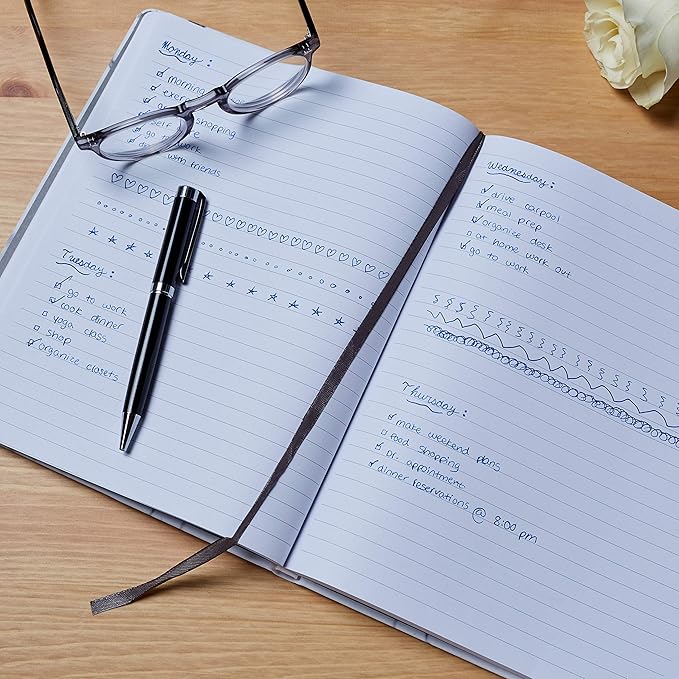 Monday:
morning
shopping
go to work
with friends
Tuesday:
go to work
cook dinner
yoga class
shop
organize closets
Wednesday:
drive carpool
meal prep
organize desk
at home work out
go to work
Thursday:
make weekend plans
food shopping
Dr. appointment
dinner reservations @ 8:00 pm